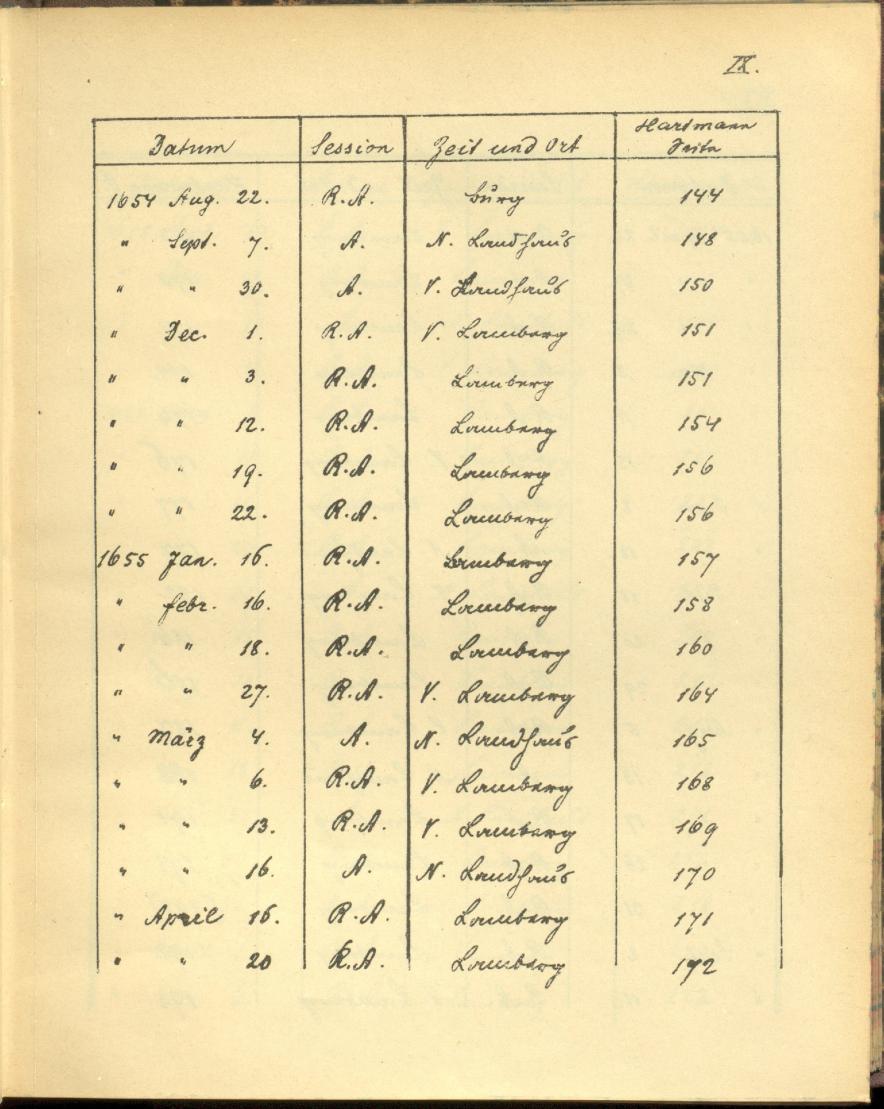 IX.
Datum Session Zeit und Ort Hartmann Seite
1654 Aug. 22. R.A. Burg 144
" Sept. 7. A. N. Landhaus 148
" " 30. A. V. Landhaus 150
" Dec. 1. R.A. V. Lamberg 151
" " 3. R.A. Lamberg 151
" " 12. R.A. Lamberg 154
" " 19. R.A. Lamberg 156
" " 22. R.A. Lamberg 156
1655 Jan. 16. R.A. Lamberg 157
" Febr. 16. R.A. Lamberg 158
" " 18. R.A. Lamberg 160
" " 27. R.A. V. Lamberg 164
" März 4. A. N. Landhaus 165
" " 6. R.A. V. Lamberg 168
" " 13. R.A. V. Lamberg 169
" " 16. A. N. Landhaus 170
" April 16. R.A. Lamberg 171
" " 20 R.A. Lamberg 172